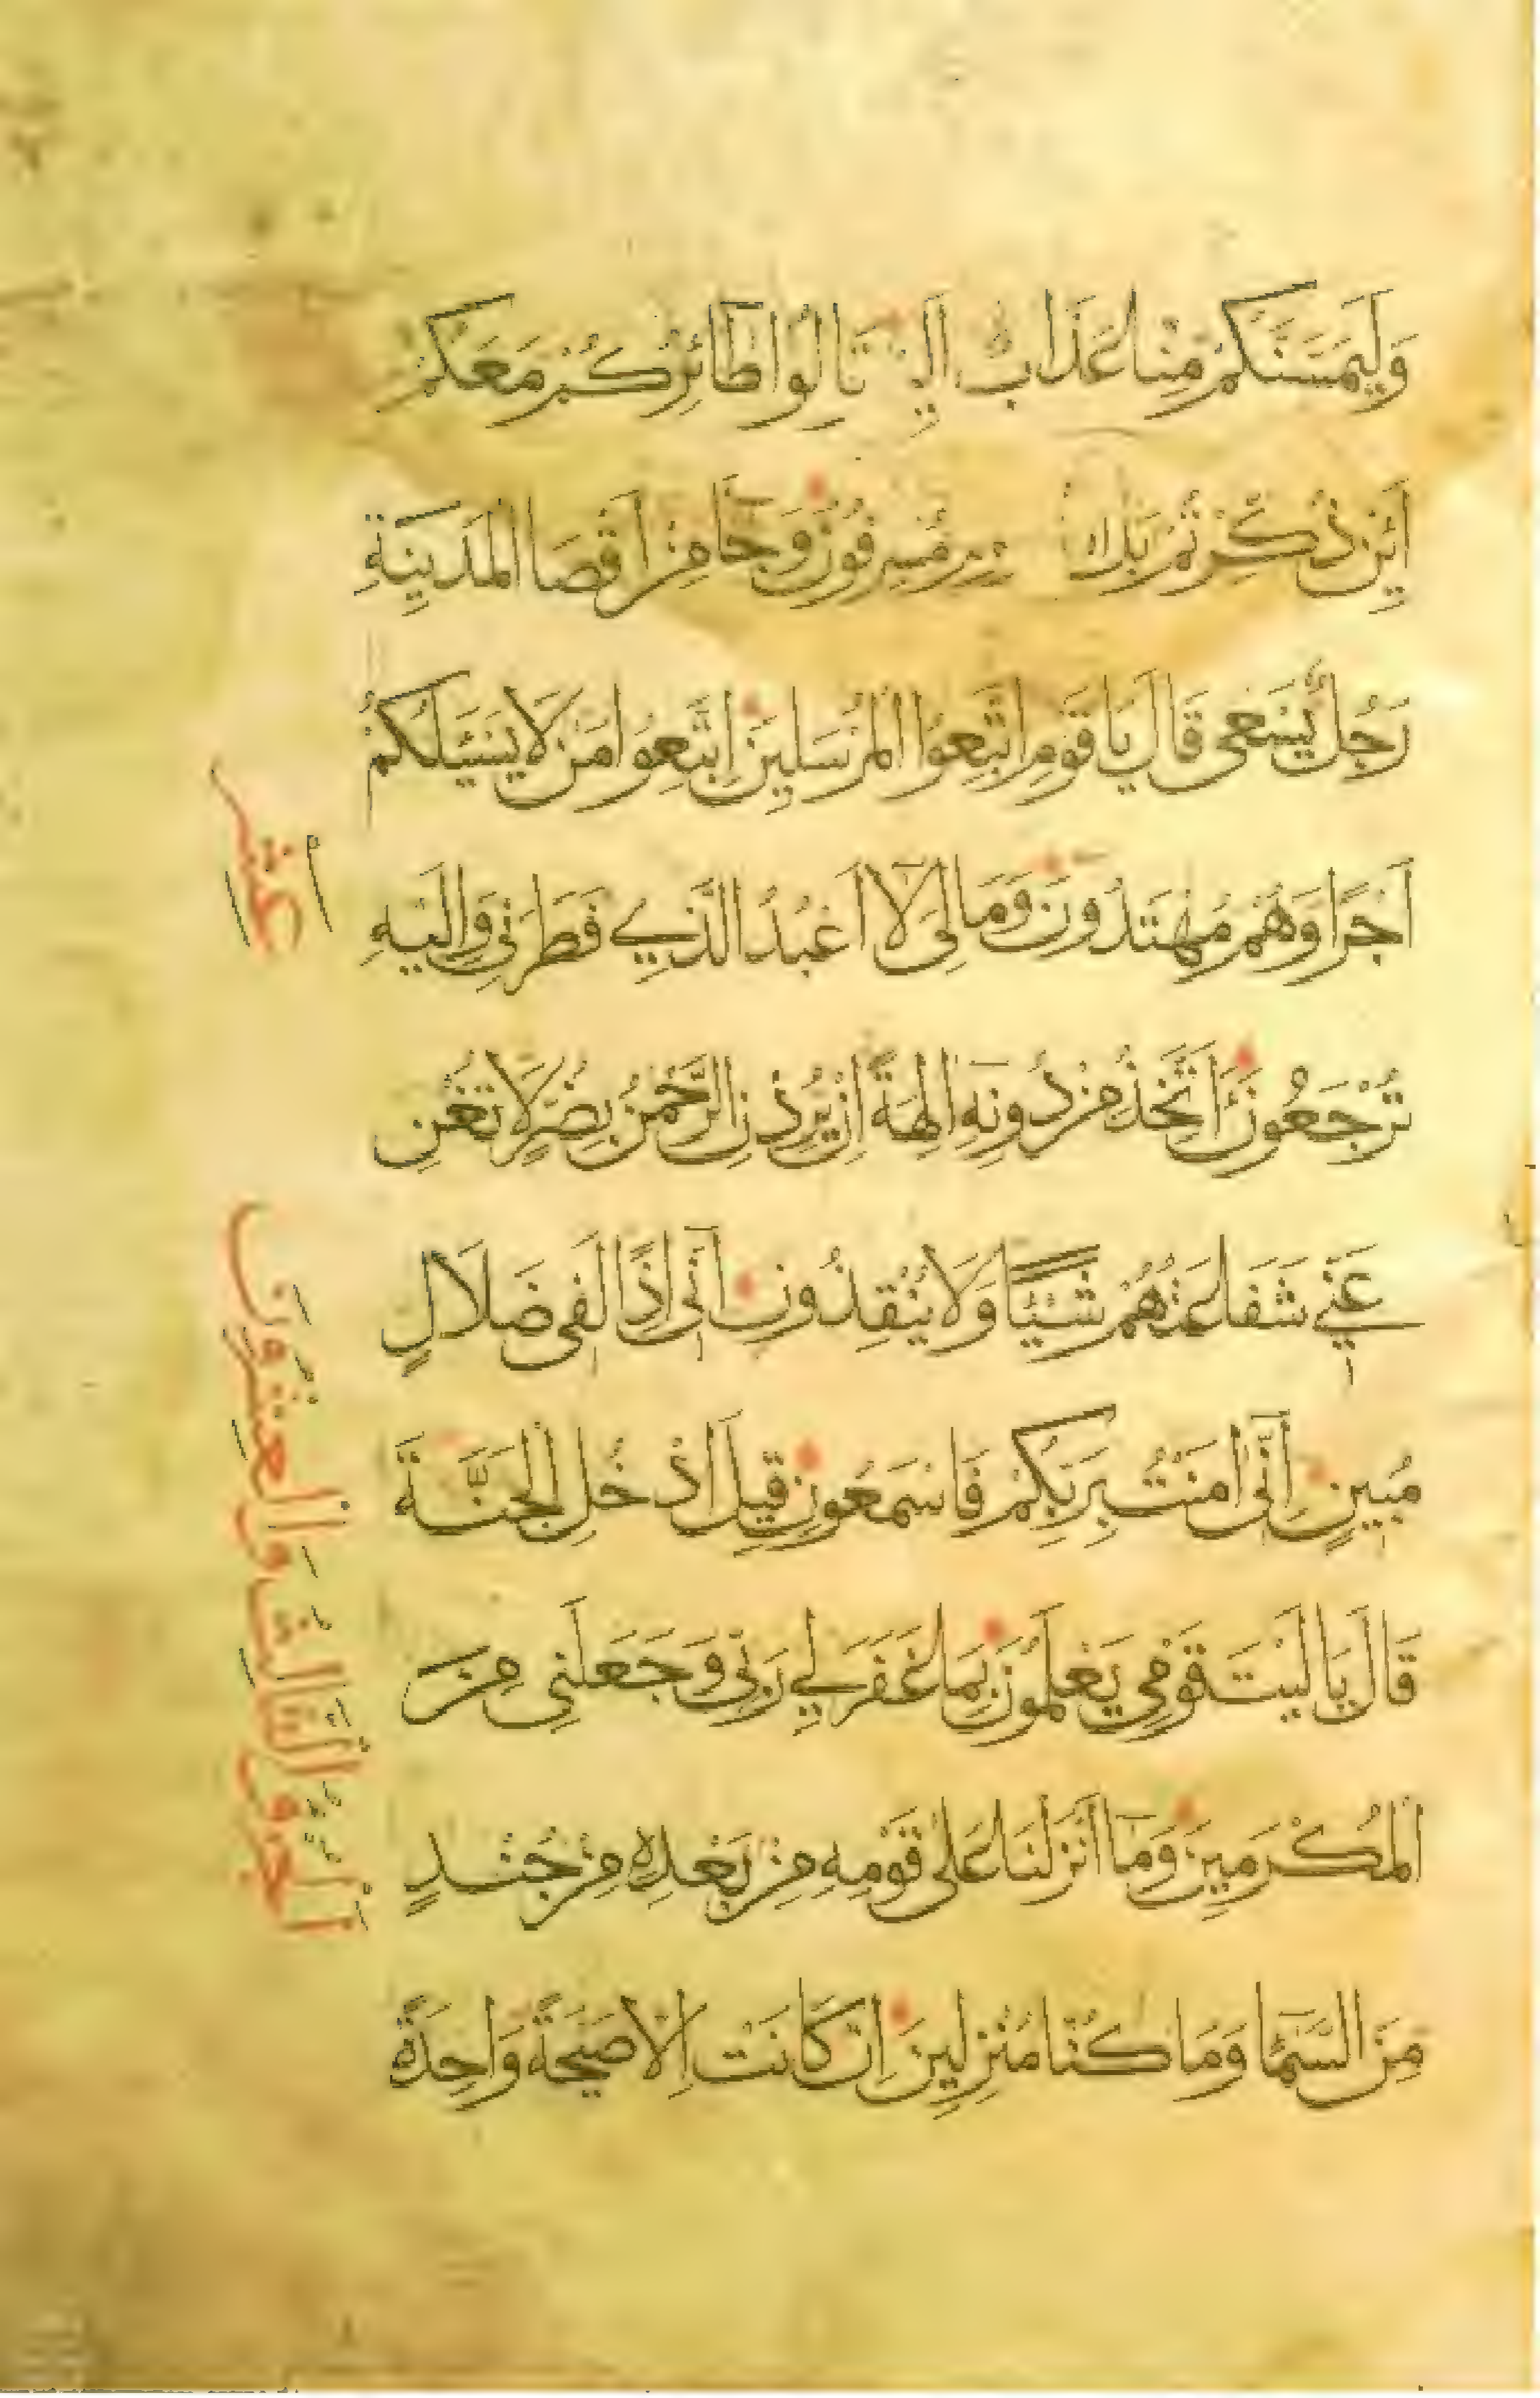 وَلَيَمَسَّنَّكُمْ مِنَّا عَذَابٌ اَلِيمٌ قَالُوا طَائِرُكُمْ مَعَكُمْ
اَئِنْ ذُكِّرْتُمْ بَلْ مُسْرِفُونَ وَجَآ مِنْ اَقْصَا الْمَدِينَةِ
رَجُلٌ يَسْعَى قَالَ يَا قَوْمِ اتَّبِعُوا الْمُرْسَلِينَ اتَّبِعُوا مَنْ لَا يَسْئَلُكُمْ
اَجْرًا وَهُمْ مُهْتَدُونَ وَمَا لِىَ لَآ اَعْبُدُ الَّذِي فَطَرَنِي وَاِلَيْهِ
تُرْجَعُونَ ءَاَتَّخِذُ مِنْ دُونِهِ اٰلِهَةً اِنْ يُرِدْنِ الرَّحْمٰنُ بِضُرٍّ لَا تُغْنِ
عَنِّي شَفَاعَتُهُمْ شَيْئًا وَلَا يُنْقِذُونِ اِنِّى اِذًا لَفِى ضَلَالٍ
مُبِينٍ اِنِّى اٰمَنْتُ بِرَبِّكُمْ فَاسْمَعُونِ قِيلَ ادْخُلِ الْجَنَّةَ
قَالَ يَا لَيْتَ قَوْمِي يَعْلَمُونَ بِمَا غَفَرَ لِي رَبِّى وَجَعَلَنِى مِنَ
الْمُكْرَمِينَ وَمَآ اَنْزَلْنَا عَلَى قَوْمِهِ مِنْ بَعْدِهِ مِنْ جُنْدٍ
مِنَ السَّمَآ وَمَا كُنَّا مُنْزِلِينَ اِنْ كَانَتْ اِلَّا صَيْحَةً وَاحِدَةً
عشر
الجزؤ الثالث والعشرون